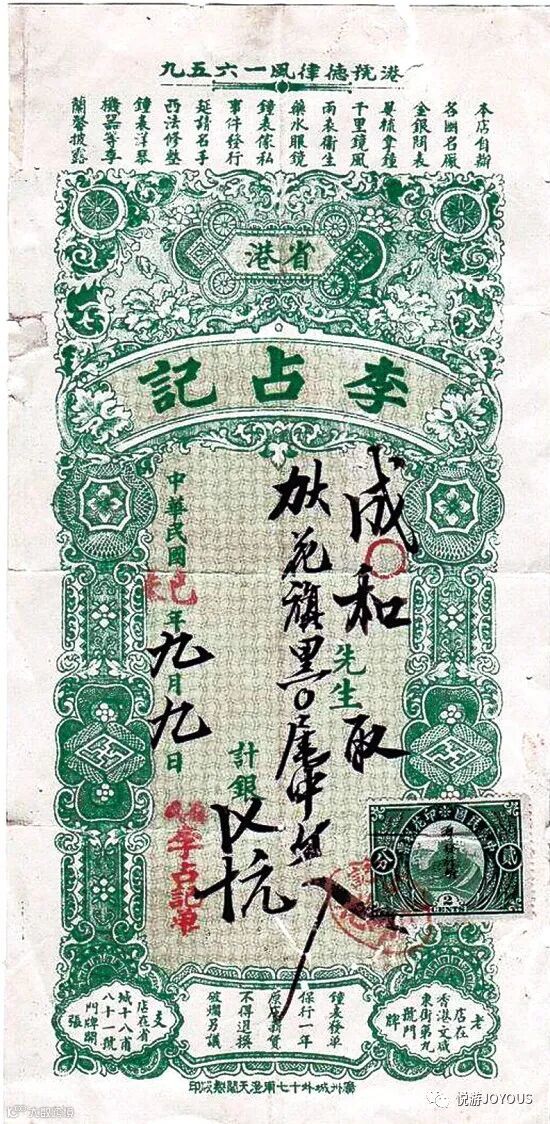 港號德律風一六五九
本店自辦
各國名厰
金銀閙表
異樣章鐘
千里鏡風
雨表衛生
藥水眼鏡
鐘表傢私
事件發行
延請名手
西法修整
鐘表洋琴
機器等事
蘭馨披露
省港
李占記
成和先生取
花旗黑
計銀
中華民國己年九月九日
李占記單
貳分
2
CENTS
老店在
香港文咸
東街第九
號門牌
鐘表發單
保行一年
原庄新貨
不得退換
破爛另議
支店在省
城十八甫
八十一號
門牌開張
廣州城外十七甫澄天閣製石印
悦游JOYOUS